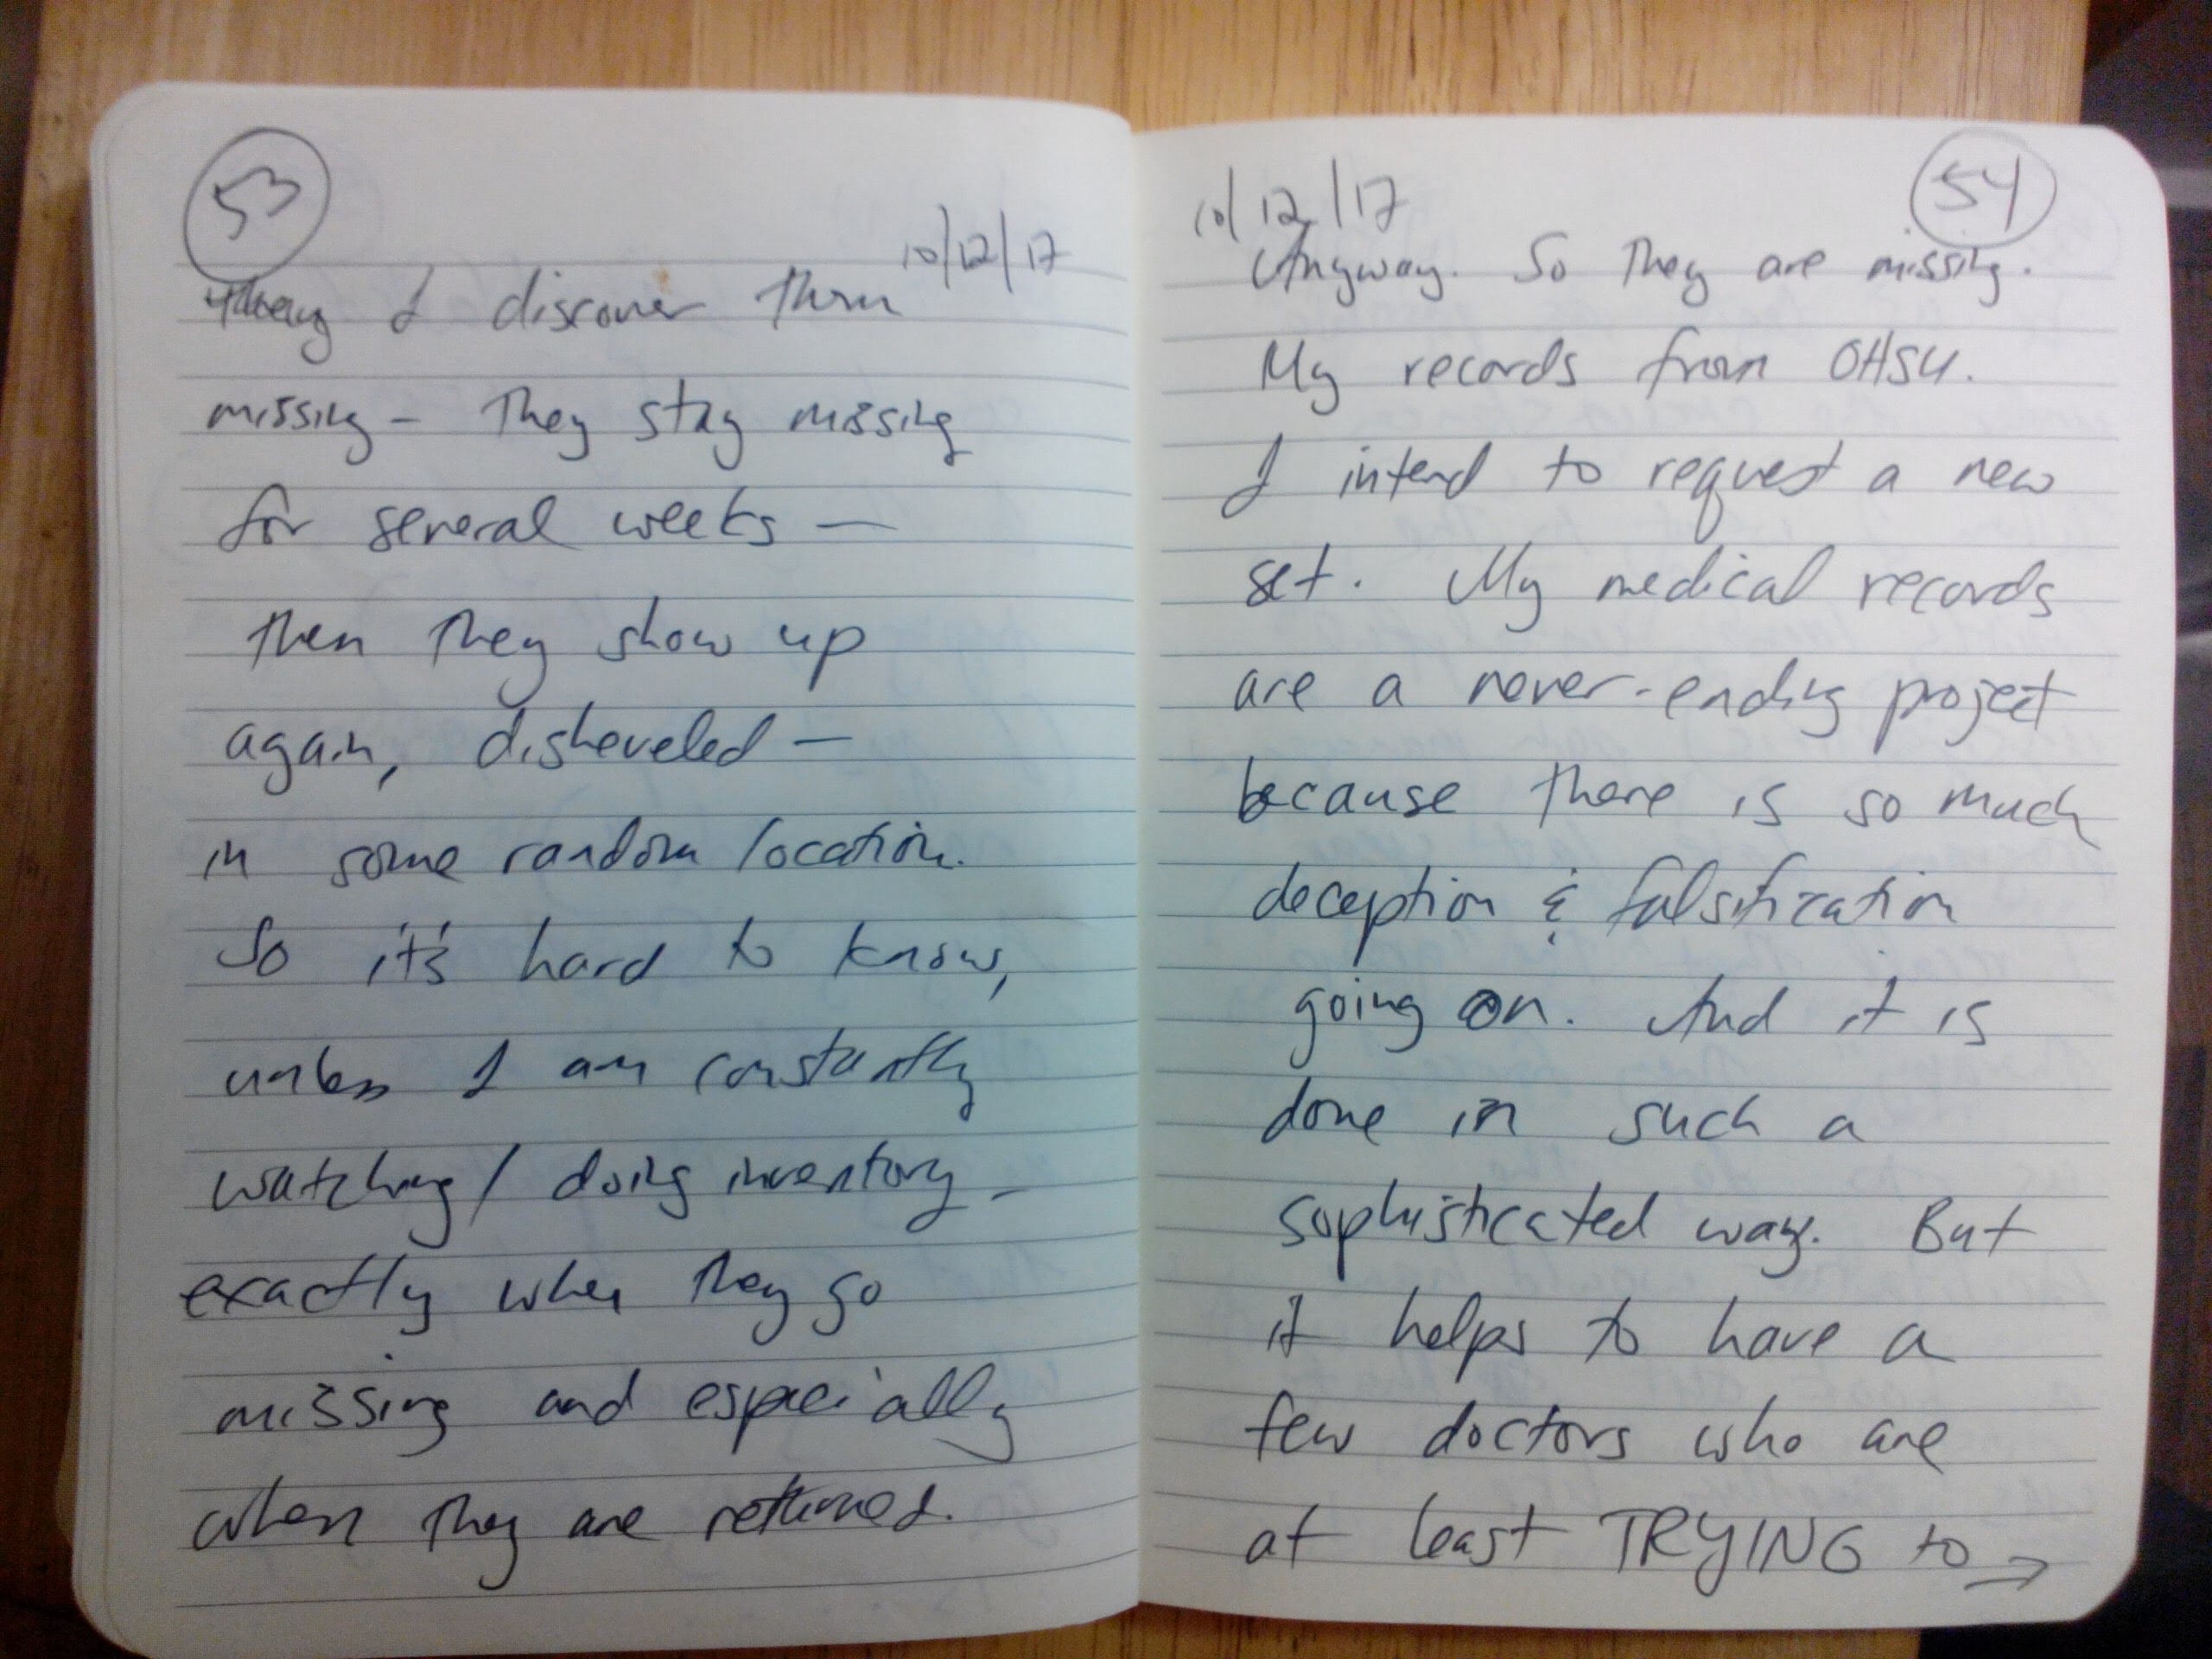 53
10/12/17
I discover them
missing - They stay missing
for several weeks —
then they show up
again, disheveled —
in some random location.
So it's hard to know,
unless I am constantly
watching / doing inventory -
exactly when they go
missing and especially
when they are returned.
54
10/12/17
Anyway. So they are missing.
My records from OHSU.
I intend to request a new
set. My medical records
are a never-ending project
because there is so much
deception & falsification
going on. And it is
done in such a
sophisticated way. But
it helps to have a
few doctors who are
at least TRYING to →